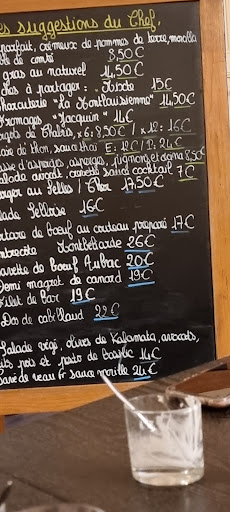 es suggestions du Chef.
parfait, crémeux de pommes de terre, morilles
de comté 8,50€
gras au naturel 14,50€
ches à partager : Mixte 15€
harcuterie "la Montlouisienne" 14,50€
Fromages "Jacquin" 14€
rgots de Chablis, x6: 8,50€ / x12: 16€
aire de thon, sauce thaï E: 12€ / P: 24€
asse d'asperges, asperges, guignons et 8,50€
alade avocat, crevette sauce cocktail 7€
erger au Selles / Cher 17,50€
lade Selloise 16€
artare de bœuf au couteau préparé 17€
ntrecôte Montbéliarde 26€
avette de bœuf Aubrac 20€
Demi magret de canard 19€
Filet de bar 19€
Dos de cabillaud 22€
Salade végé, olives de Kalamata, avocats,
its pois et pesto de basilic 14€
sauce morille 24€